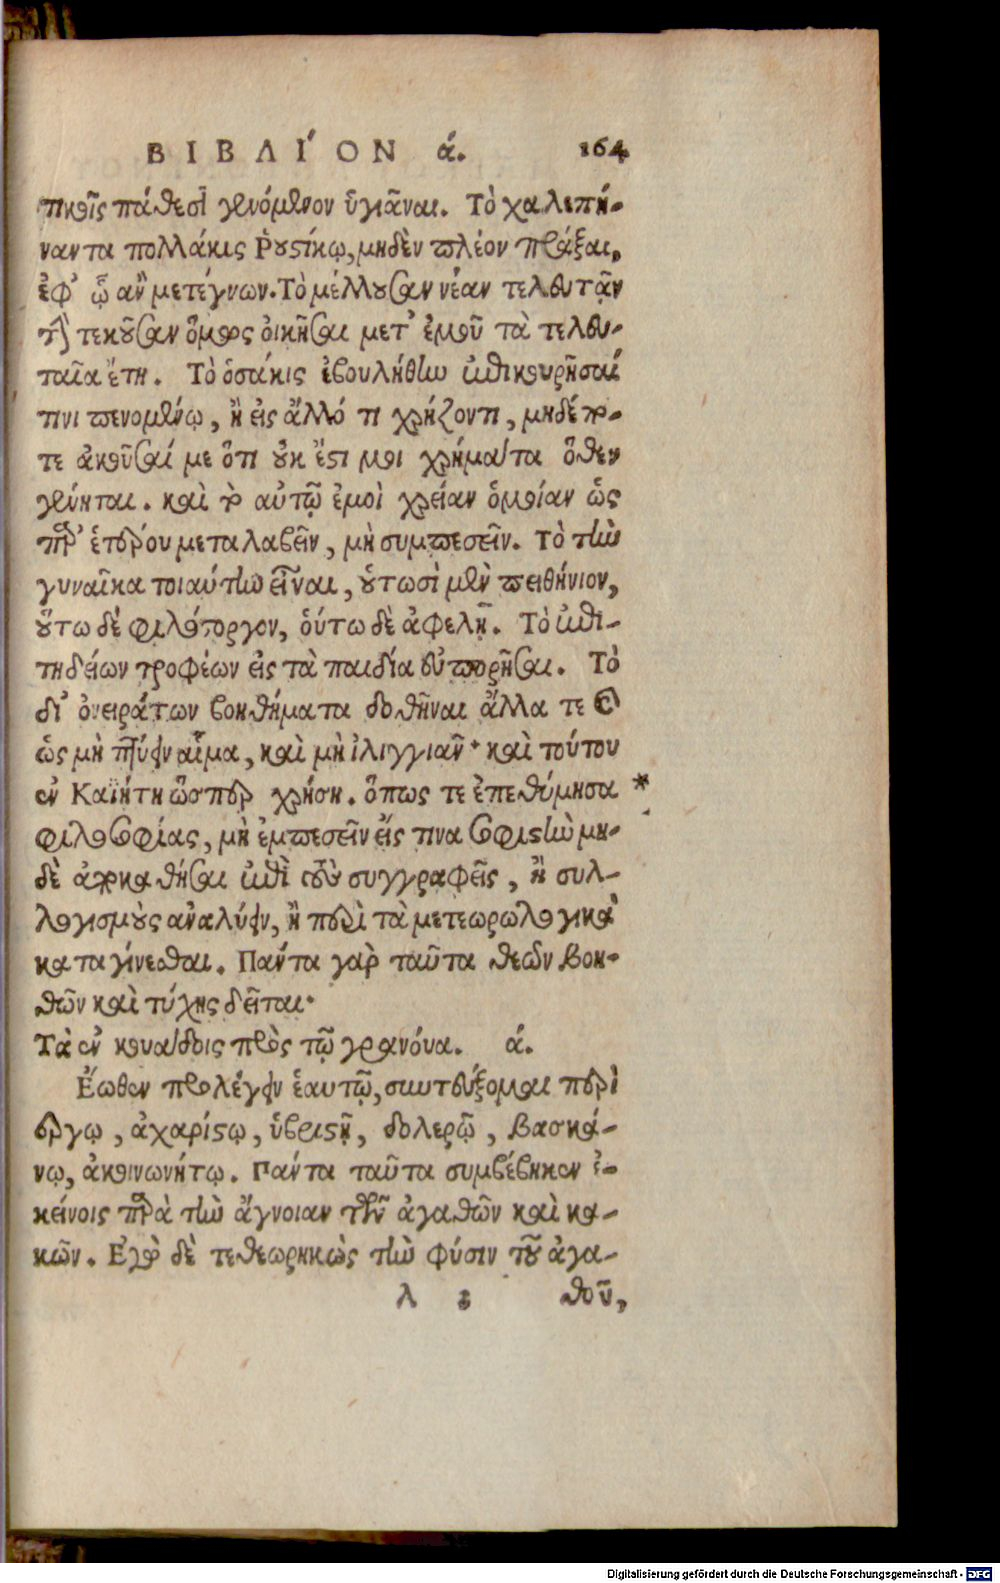 ΒΙΒΛΊΟΝ ά. 164
πικοῖς πάθεσι γενόμενον ὑγιᾶναι. Τὸ χαλεπή-
ναντα πολλάκις Ῥουστίκῳ, μηδὲν πλέον πρᾶξαι,
ἐφ' ᾧ ἂν μετέγνων. Τὸ μέλλουσαν νέαν τελευτᾷν
τὴν τεκοῦσαν ὅμως οἰκῆσαι μετ' ἐμοῦ τὰ τελευ-
ταῖα ἔτη. Τὸ ὁσάκις ἐβουλήθην ἐπικουρῆσαί
τινι πενομένῳ, ἢ εἰς ἄλλό τι χρήζοντι, μηδέπο-
τε ἀκοῦσαί με ὅτι οὐκ ἔστι μοι χρήματα ὅθεν
γένηται. καὶ τὸ αὐτῷ ἐμοὶ χρείαν ὁμοίαν ὡς
παρ' ἑτέρου μεταλαβεῖν, μὴ συμπεσεῖν. Τὸ τὴν
γυναῖκα τοιαύτην εἶναι, οὑτωσὶ μὲν πειθήνιον,
οὕτω δὲ φιλόστοργον, οὕτω δὲ ἀφελῆ. Τὸ ἐπι-
τηδείων τροφέων εἰς τὰ παιδία εὐπορῆσαι. Τὸ
δι' ὀνειράτων βοηθήματα δοθῆναι ἄλλα τε καὶ
ὡς μὴ πτύειν αἷμα, καὶ μὴ ἰλιγγιᾶν· καὶ τούτου
ἐν Καϊήτῃ ὥσπερ χρήσῃ. ὅπως τε ἐπεθύμησα *
φιλοσοφίας, μὴ ἐμπεσεῖν εἴς τινα σοφιστὴν μη-
δὲ ἀποκαθῆσαι ἐπὶ τοὺς συγγραφεῖς, ἢ συλ-
λογισμοὺς ἀναλύειν, ἢ περὶ τὰ μετεωρωλογικὰ
καταγίνεσθαι. Πάντα γὰρ ταῦτα θεῶν βοη-
θῶν καὶ τύχης δεῖται·
Τὰ ἐν κουάδοις πρὸς τῷ γρανούα. ά.
Ἕωθεν προλέγειν ἑαυτῷ, συντεύξομαι περι
έργῳ, ἀχαρίστῳ, ὑβριστῇ, δολερῷ, βασκά-
νῳ, ἀκοινωνήτῳ. Πάντα ταῦτα συμβέβηκεν ἐ-
κείνοις παρὰ τὴν ἄγνοιαν τῶν ἀγαθῶν καὶ κα-
κῶν. Ἐγὼ δὲ τεθεωρηκὼς τὴν φύσιν τοῦ ἀγα-
λ 2 θοῦ,
Digitalisierung gefördert durch die Deutsche Forschungsgemeinschaft - DFG